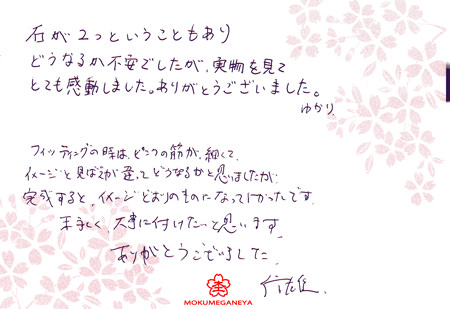 石が2つということもあり
どうなるか不安でしたが、実物を見て
とても感動しました。ありがとうございました。
ゆかり
フィッティングの時は、ピンクの筋が、細くて、
イメージと見ばえが違ってどうなるかと思いましたが、
完成すると、イメージどおりのものになっていてよかったです。
末永く、大事に付けたいと思います。
ありがとうございました。
MOKUMEGANEYA